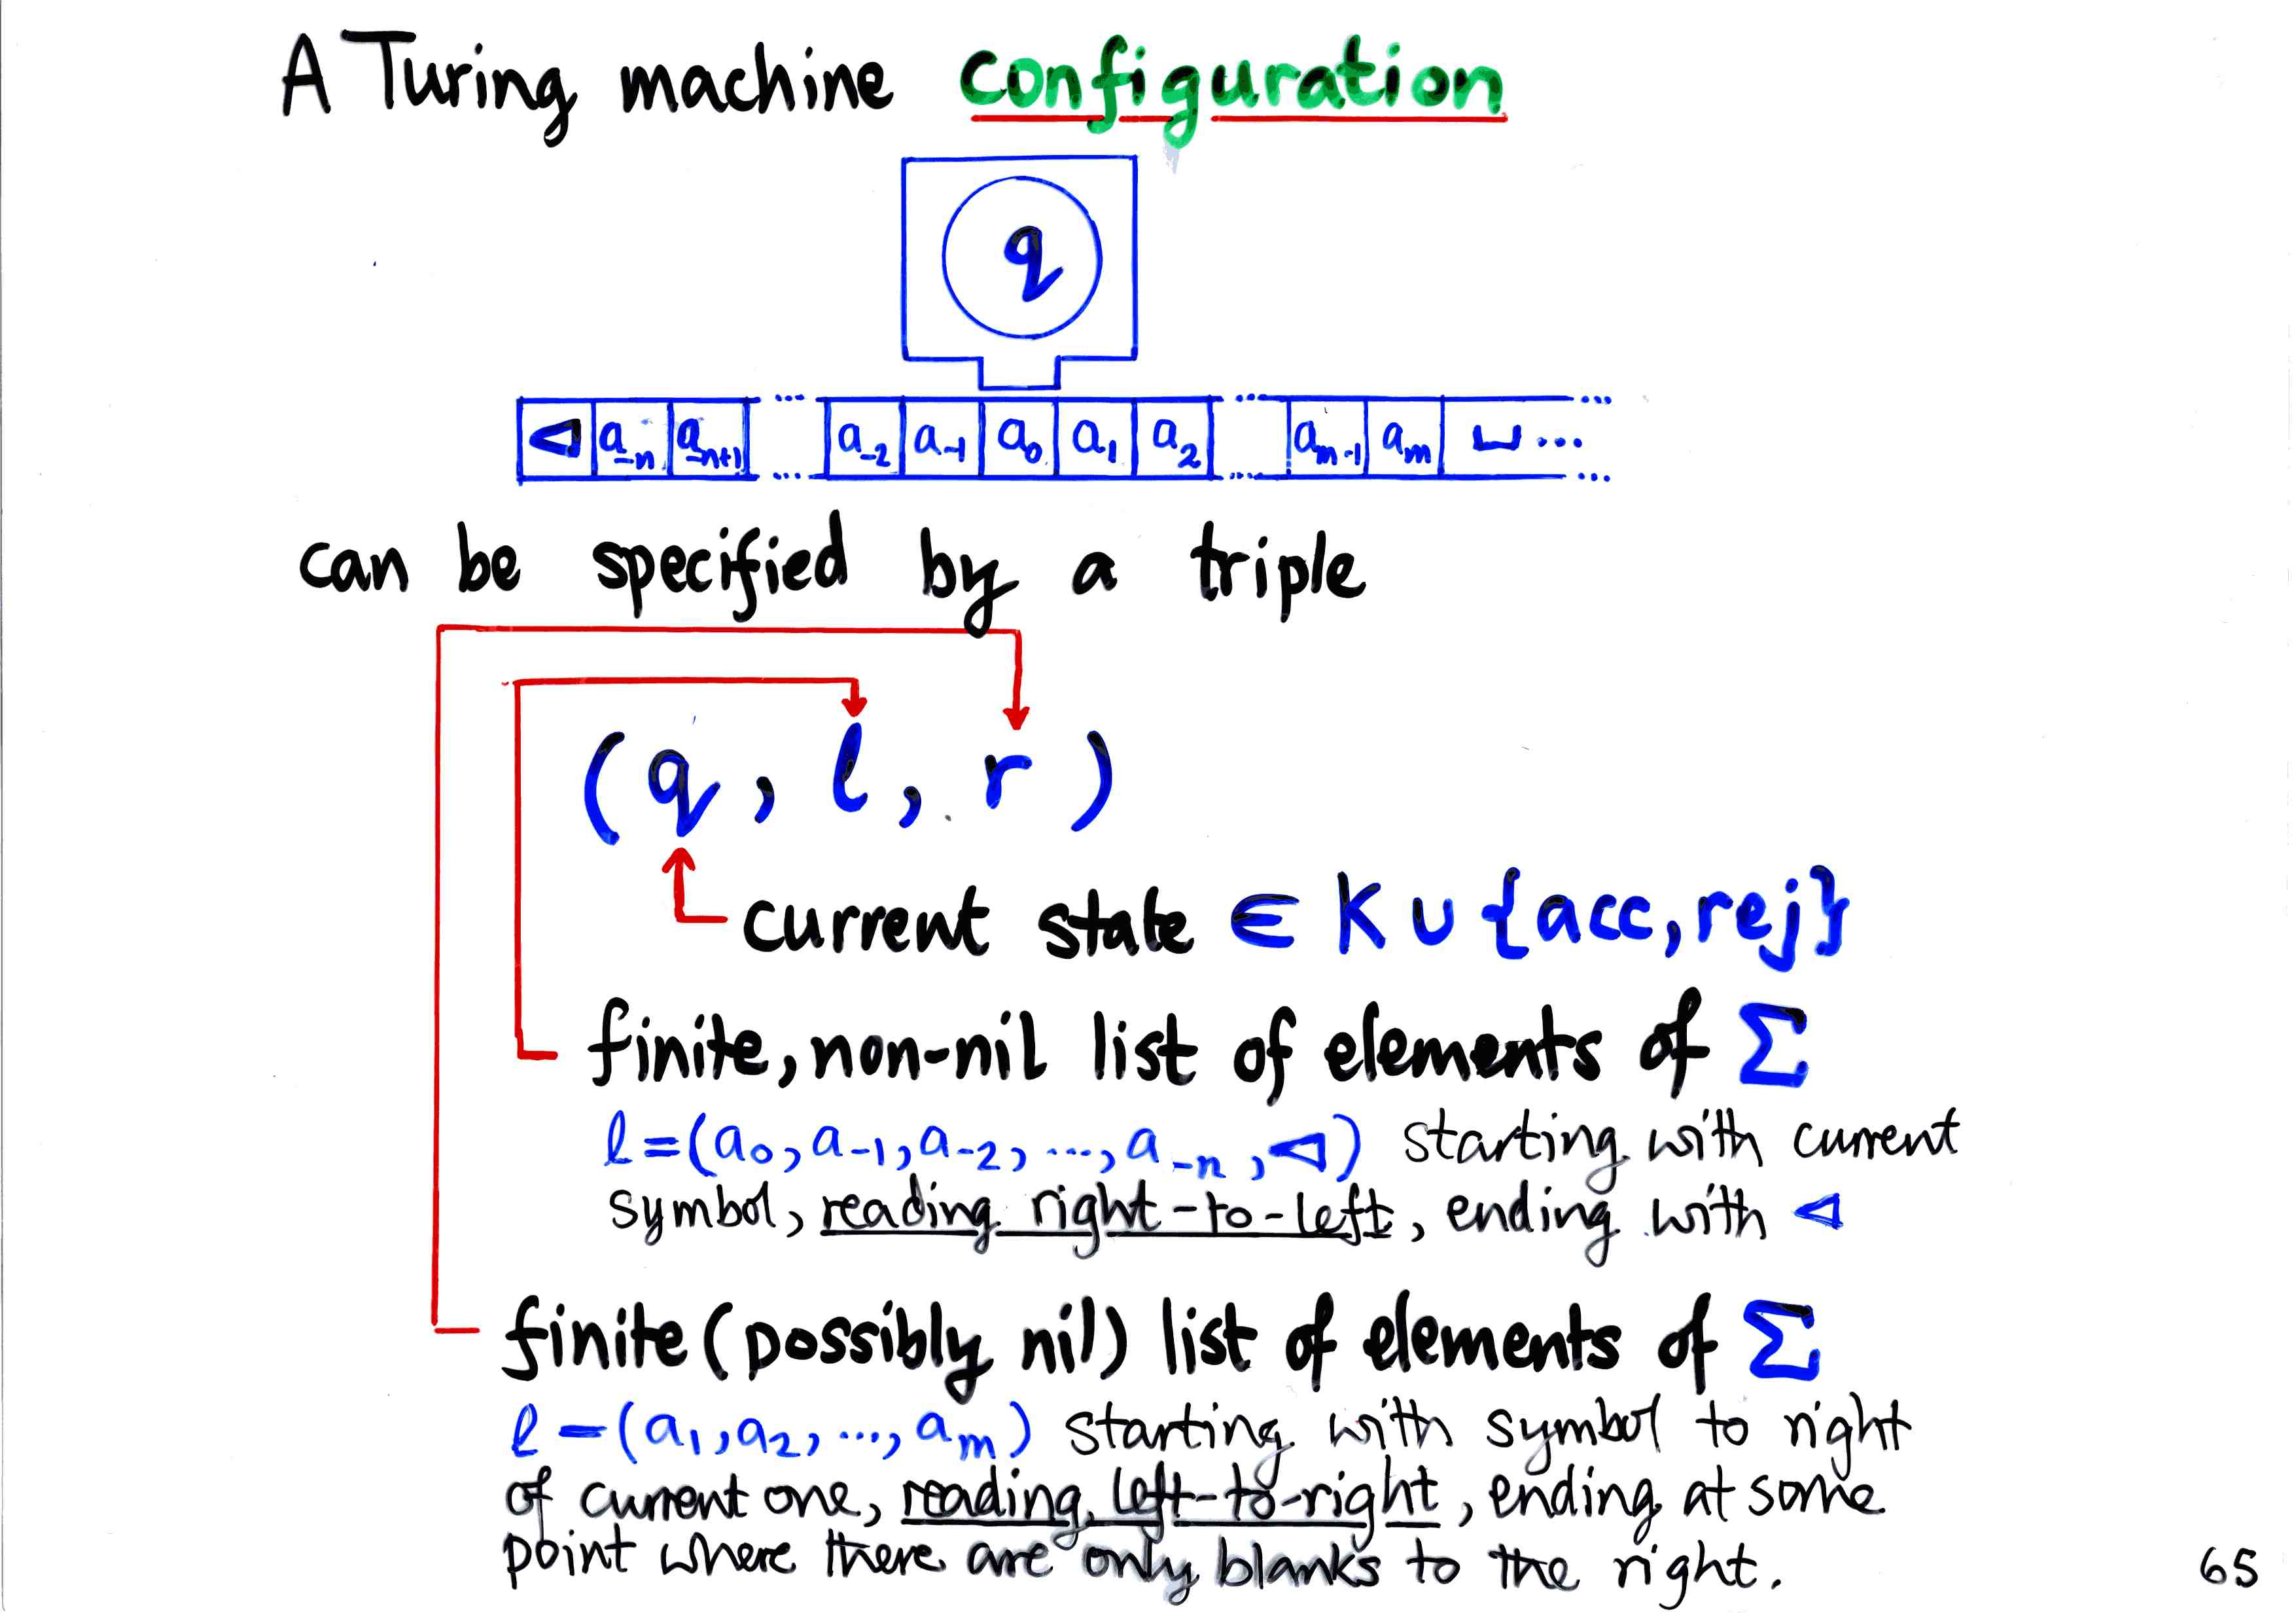 A Turing machine configuration
q
◁ a₋ₙ a₋ₙ₊₁ ... a₋₂ a₋₁ a₀ a₁ a₂ ... aₘ₋₁ aₘ ␣ ...
can be specified by a triple
(q, l, r)
current state ∈ K ∪ {acc, rej}
finite, non-nil list of elements of Σ
l = (a₀, a₋₁, a₋₂, ..., a₋ₙ, ◁) starting with current
symbol, reading right-to-left, ending with ◁
finite (possibly nil) list of elements of Σ
l = (a₁, a₂, ..., aₘ) starting with symbol to right
of current one, reading left-to-right, ending at some
point where there are only blanks to the right.
65